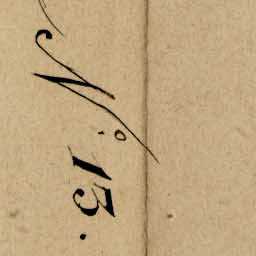 N.º 13.